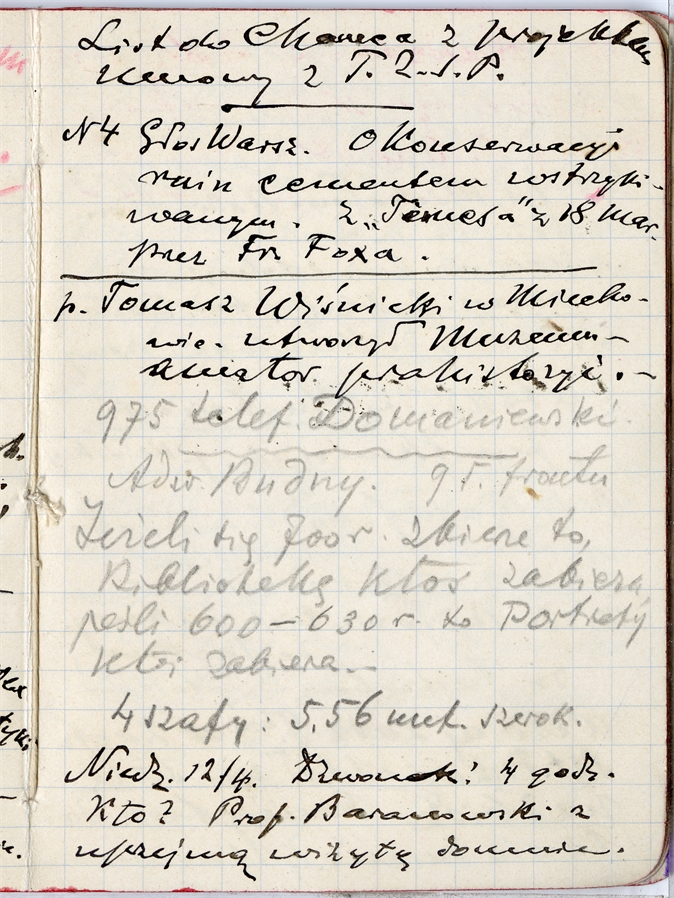 List do Chanca z projektem
umowy z T. Z. S. P.
N4 Głos Warsz. O Konserwacyi
ruin cementem wstrzyki-
wanym. Z „Temesa" z 18 Mar.
przez Fr. Foxa.
p. Tomasz Wiśnicki w Miecho-
wie. utworzył Muzeum –
amator prahistoryi. –
975 telef. Domaniewski.
Adw. Budny. 9 r. frontu
Jeżeli się 700 r. zbierze to,
Bibliotekę Ktoś zabiera,
jeśli 600–630 r. to Portrety
ktoś zabiera. –
4 szafy: 5,56 met. szerok.
Niedz. 12/4. Dzwonek! 4 godz.
Kto? Prof. Baranowski z
uprzejmą wizytą domnie.